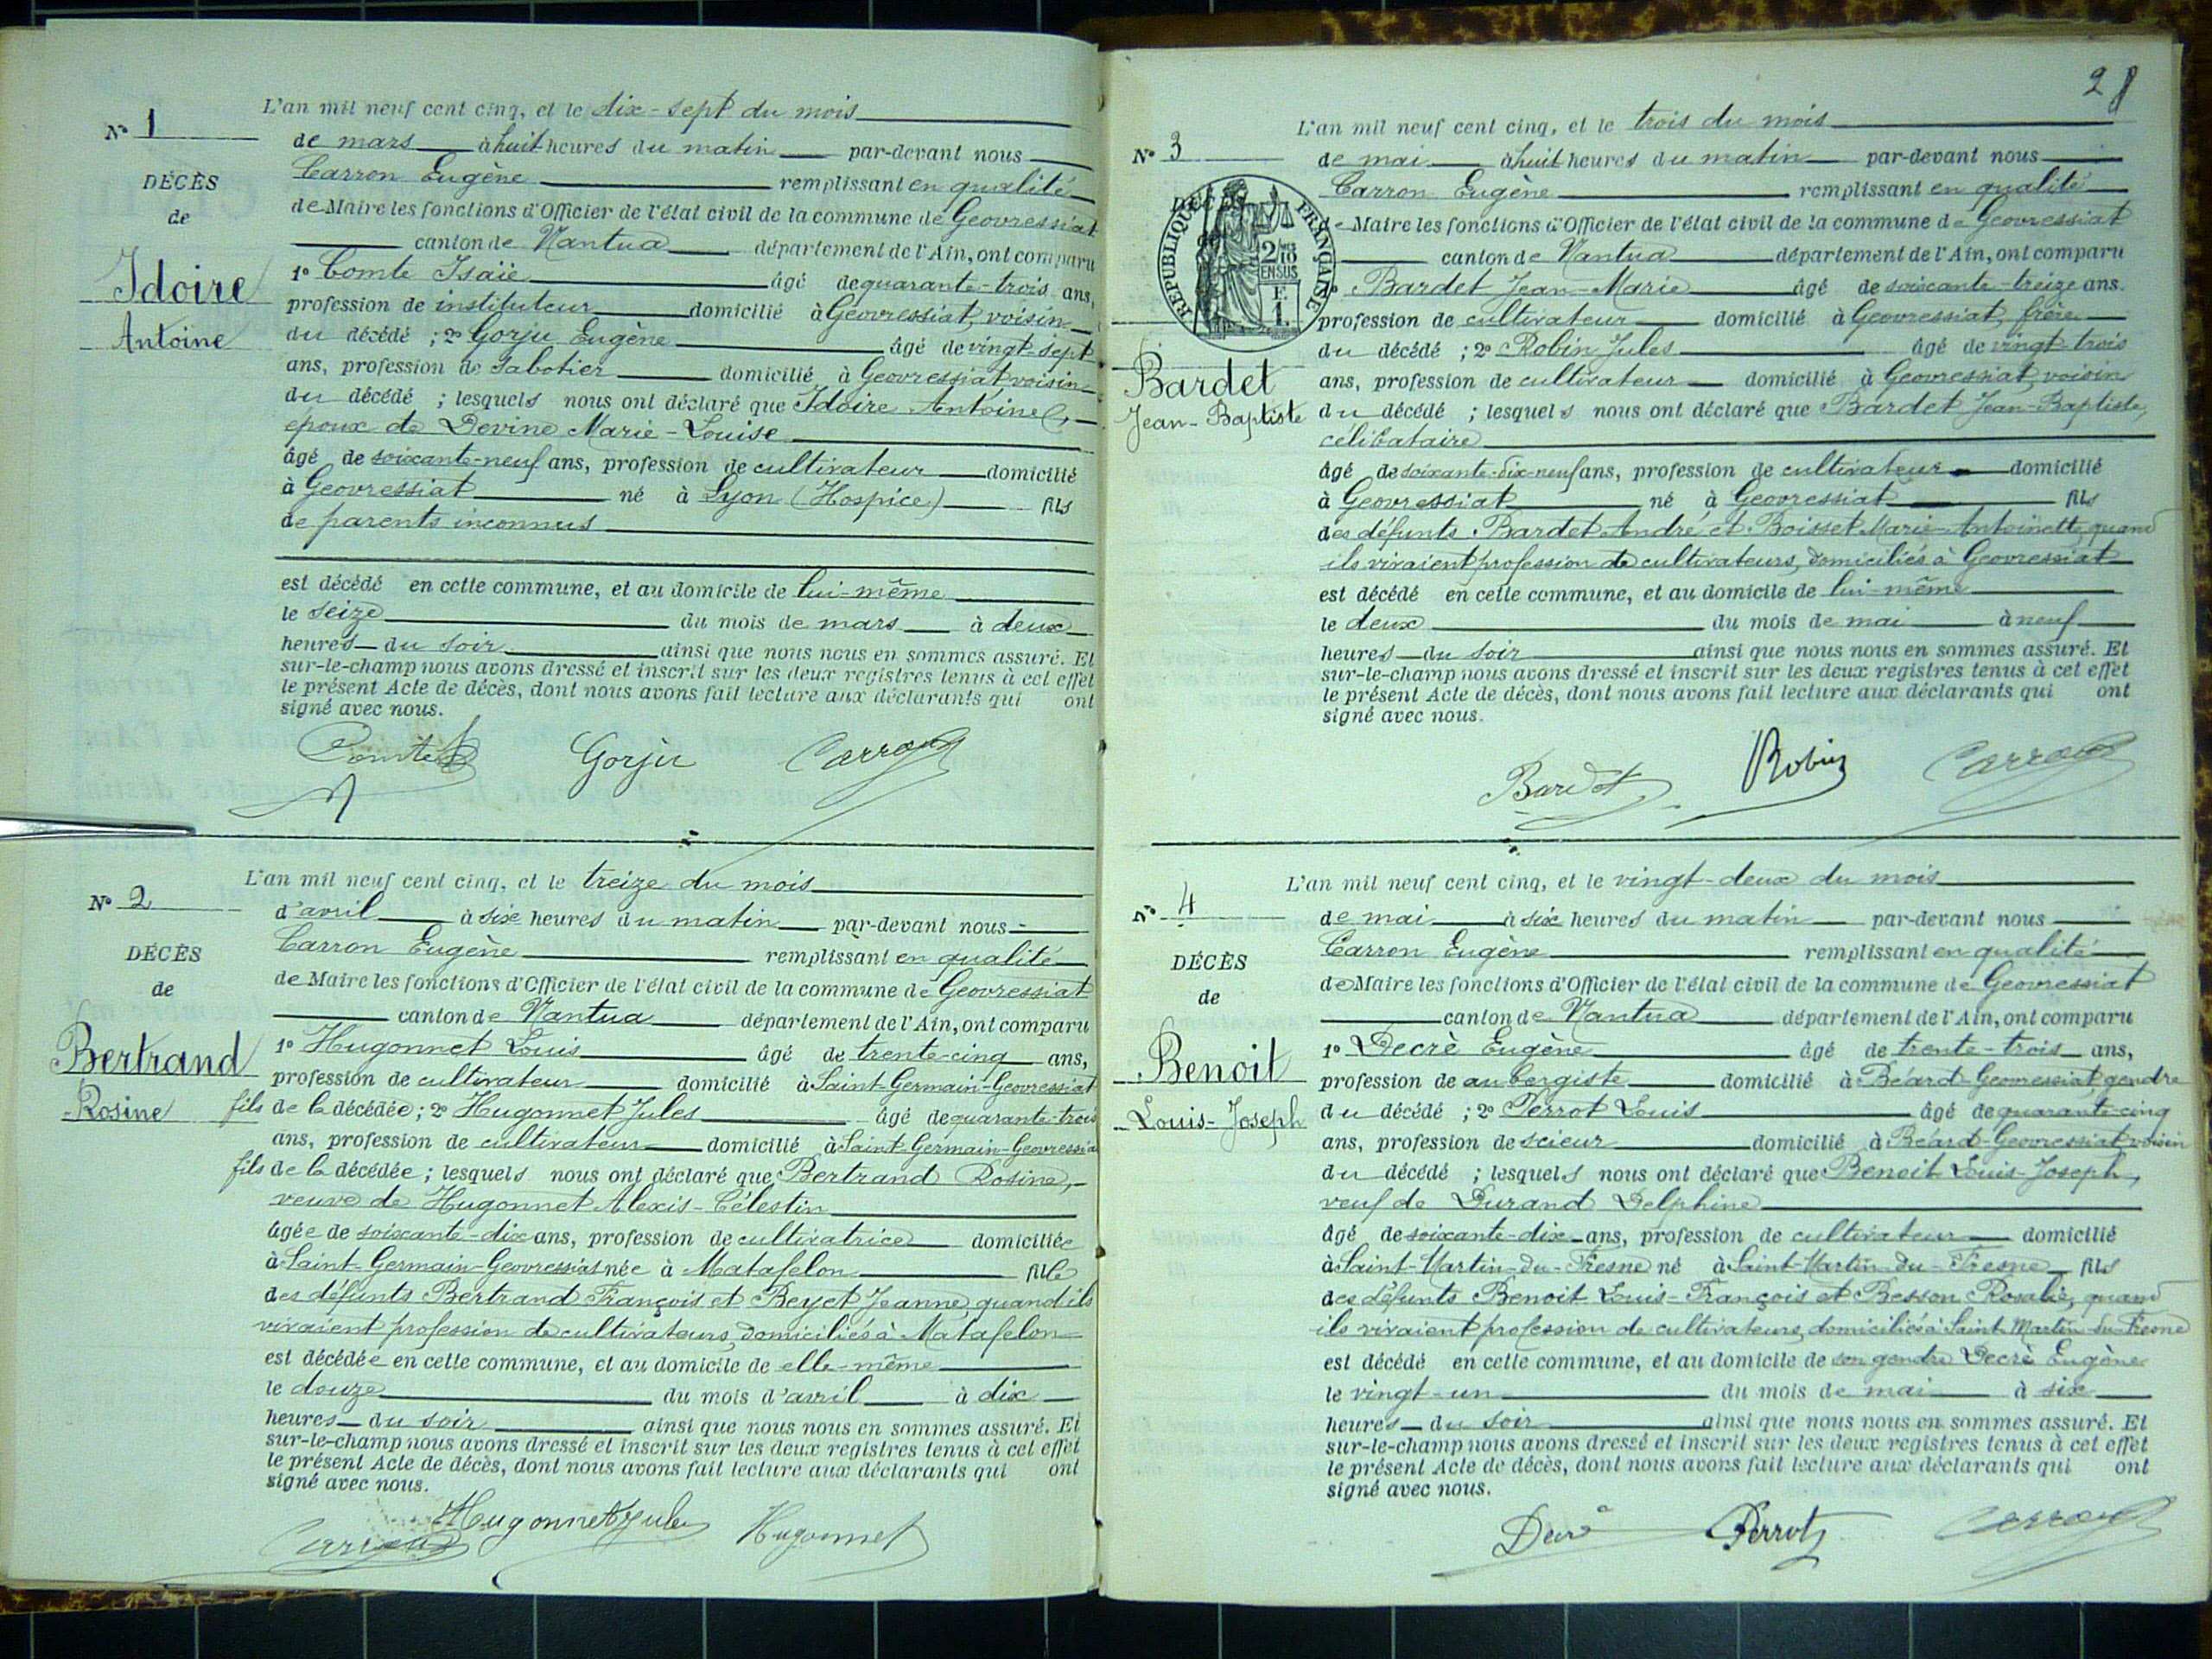 N° 1
DÉCÈS
de
Idoire
Antoine
L'an mil neuf cent cinq, et le dix-sept du mois
de mars à huit heures du matin par-devant nous
Carron Eugène remplissant en qualité
de Maire les fonctions d'Officier de l'état civil de la commune de Geovressiat
canton de Nantua département de l'Ain, ont comparu
1° Comte Isaïe âgé de quarante-trois ans,
profession de instituteur domicilié à Geovressiat, voisin
du décédé ; 2° Gorju Eugène âgé de vingt-sept
ans, profession de sabotier domicilié à Geovressiat, voisin
du décédé ; lesquels nous ont déclaré que Idoire Antoine
époux de Devine Marie-Louise
âgé de soixante-neuf ans, profession de cultivateur domicilié
à Geovressiat né à Lyon (Hospice) fils
de parents inconnus
est décédé en cette commune, et au domicile de lui-même
le seize du mois de mars à deux
heures du soir ainsi que nous nous en sommes assuré. Et
sur-le-champ nous avons dressé et inscrit sur les deux registres tenus à cet effet
le présent Acte de décès, dont nous avons fait lecture aux déclarants qui ont
signé avec nous.
Comte Gorju Carron
N° 2
DÉCÈS
de
Bertrand
Rosine
L'an mil neuf cent cinq, et le treize du mois
d'avril à six heures du matin par-devant nous
Carron Eugène remplissant en qualité
de Maire les fonctions d'Officier de l'état civil de la commune de Geovressiat
canton de Nantua département de l'Ain, ont comparu
1° Hugonnet Louis âgé de trente-cinq ans,
profession de cultivateur domicilié à Saint-Germain-Geovressiat
fils de la décédée ; 2° Hugonnet Jules âgé de quarante-trois
ans, profession de cultivateur domicilié à Saint-Germain-Geovressia
fils de la décédée ; lesquels nous ont déclaré que Bertrand Rosine,
veuve de Hugonnet Alexis-Célestin
âgée de soixante-dix ans, profession de cultivatrice domiciliée
à Saint-Germain-Geovressiat née à Matafelon fille
des défunts Bertrand François et Beyet Jeanne, quand ils
vivaient profession de cultivateurs, domiciliés à Matafelon
est décédée en cette commune, et au domicile de elle-même
le douze du mois d'avril à dix
heures du soir ainsi que nous nous en sommes assuré. Et
sur-le-champ nous avons dressé et inscrit sur les deux registres tenus à cet effet
le présent Acte de décès, dont nous avons fait lecture aux déclarants qui ont
signé avec nous.
Carron Hugonnet Jules Hugonnet
2
N° 3
DÉCÈS
RÉPUBLIQUE FRANÇAISE
2/10
EN SUS
F.
1.
Bardet
Jean-Baptiste
L'an mil neuf cent cinq, et le trois du mois
de mai à huit heures du matin par-devant nous
Carron Eugène remplissant en qualité
de Maire les fonctions d'Officier de l'état civil de la commune de Geovressiat
canton de Nantua département de l'Ain, ont comparu
Bardet Jean-Marie âgé de soixante-treize ans.
profession de cultivateur domicilié à Geovressiat, frère
du décédé ; 2° Robin Jules âgé de vingt-trois
ans, profession de cultivateur domicilié à Geovressiat, voisin
du décédé ; lesquels nous ont déclaré que Bardet Jean-Baptiste,
célibataire
âgé de soixante-dix-neuf ans, profession de cultivateur domicilié
à Geovressiat né à Geovressiat fils
des défunts Bardet André et Boisset Marie-Antoinette, quand
ils vivaient profession de cultivateurs, domiciliés à Geovressiat
est décédé en cette commune, et au domicile de lui-même
le deux du mois de mai à neuf
heures du soir ainsi que nous nous en sommes assuré. Et
sur-le-champ nous avons dressé et inscrit sur les deux registres tenus à cet effet
le présent Acte de décès, dont nous avons fait lecture aux déclarants qui ont
signé avec nous.
Bardet Robin Carron
N° 4
DÉCÈS
de
Benoit
Louis-Joseph
L'an mil neuf cent cinq, et le vingt-deux du mois
de mai à six heures du matin par-devant nous
Carron Eugène remplissant en qualité
de Maire les fonctions d'Officier de l'état civil de la commune de Geovressiat
canton de Nantua département de l'Ain, ont comparu
1° Decrè Eugène âgé de trente-trois ans,
profession de aubergiste domicilié à Béard-Geovressiat, gendre
du décédé ; 2° Perrot Louis âgé de quarante-cinq
ans, profession de scieur domicilié à Béard-Geovressiat voisin
du décédé ; lesquels nous ont déclaré que Benoit Louis-Joseph,
veuf de Durand Delphine
âgé de soixante-dix ans, profession de cultivateur domicilié
à Saint-Martin-du-Fresne né à Saint-Martin-du-Fresne fils
des défunts Benoit Louis-François et Besson Rosalie, quand
ils vivaient profession de cultivateurs, domiciliés à Saint Martin-du-Fresne
est décédé en cette commune, et au domicile de son gendre Decrè Eugène
le vingt-un du mois de mai à six
heures du soir ainsi que nous nous en sommes assuré. Et
sur-le-champ nous avons dressé et inscrit sur les deux registres tenus à cet effet
le présent Acte de décès, dont nous avons fait lecture aux déclarants qui ont
signé avec nous.
Decrè Perrot Carron